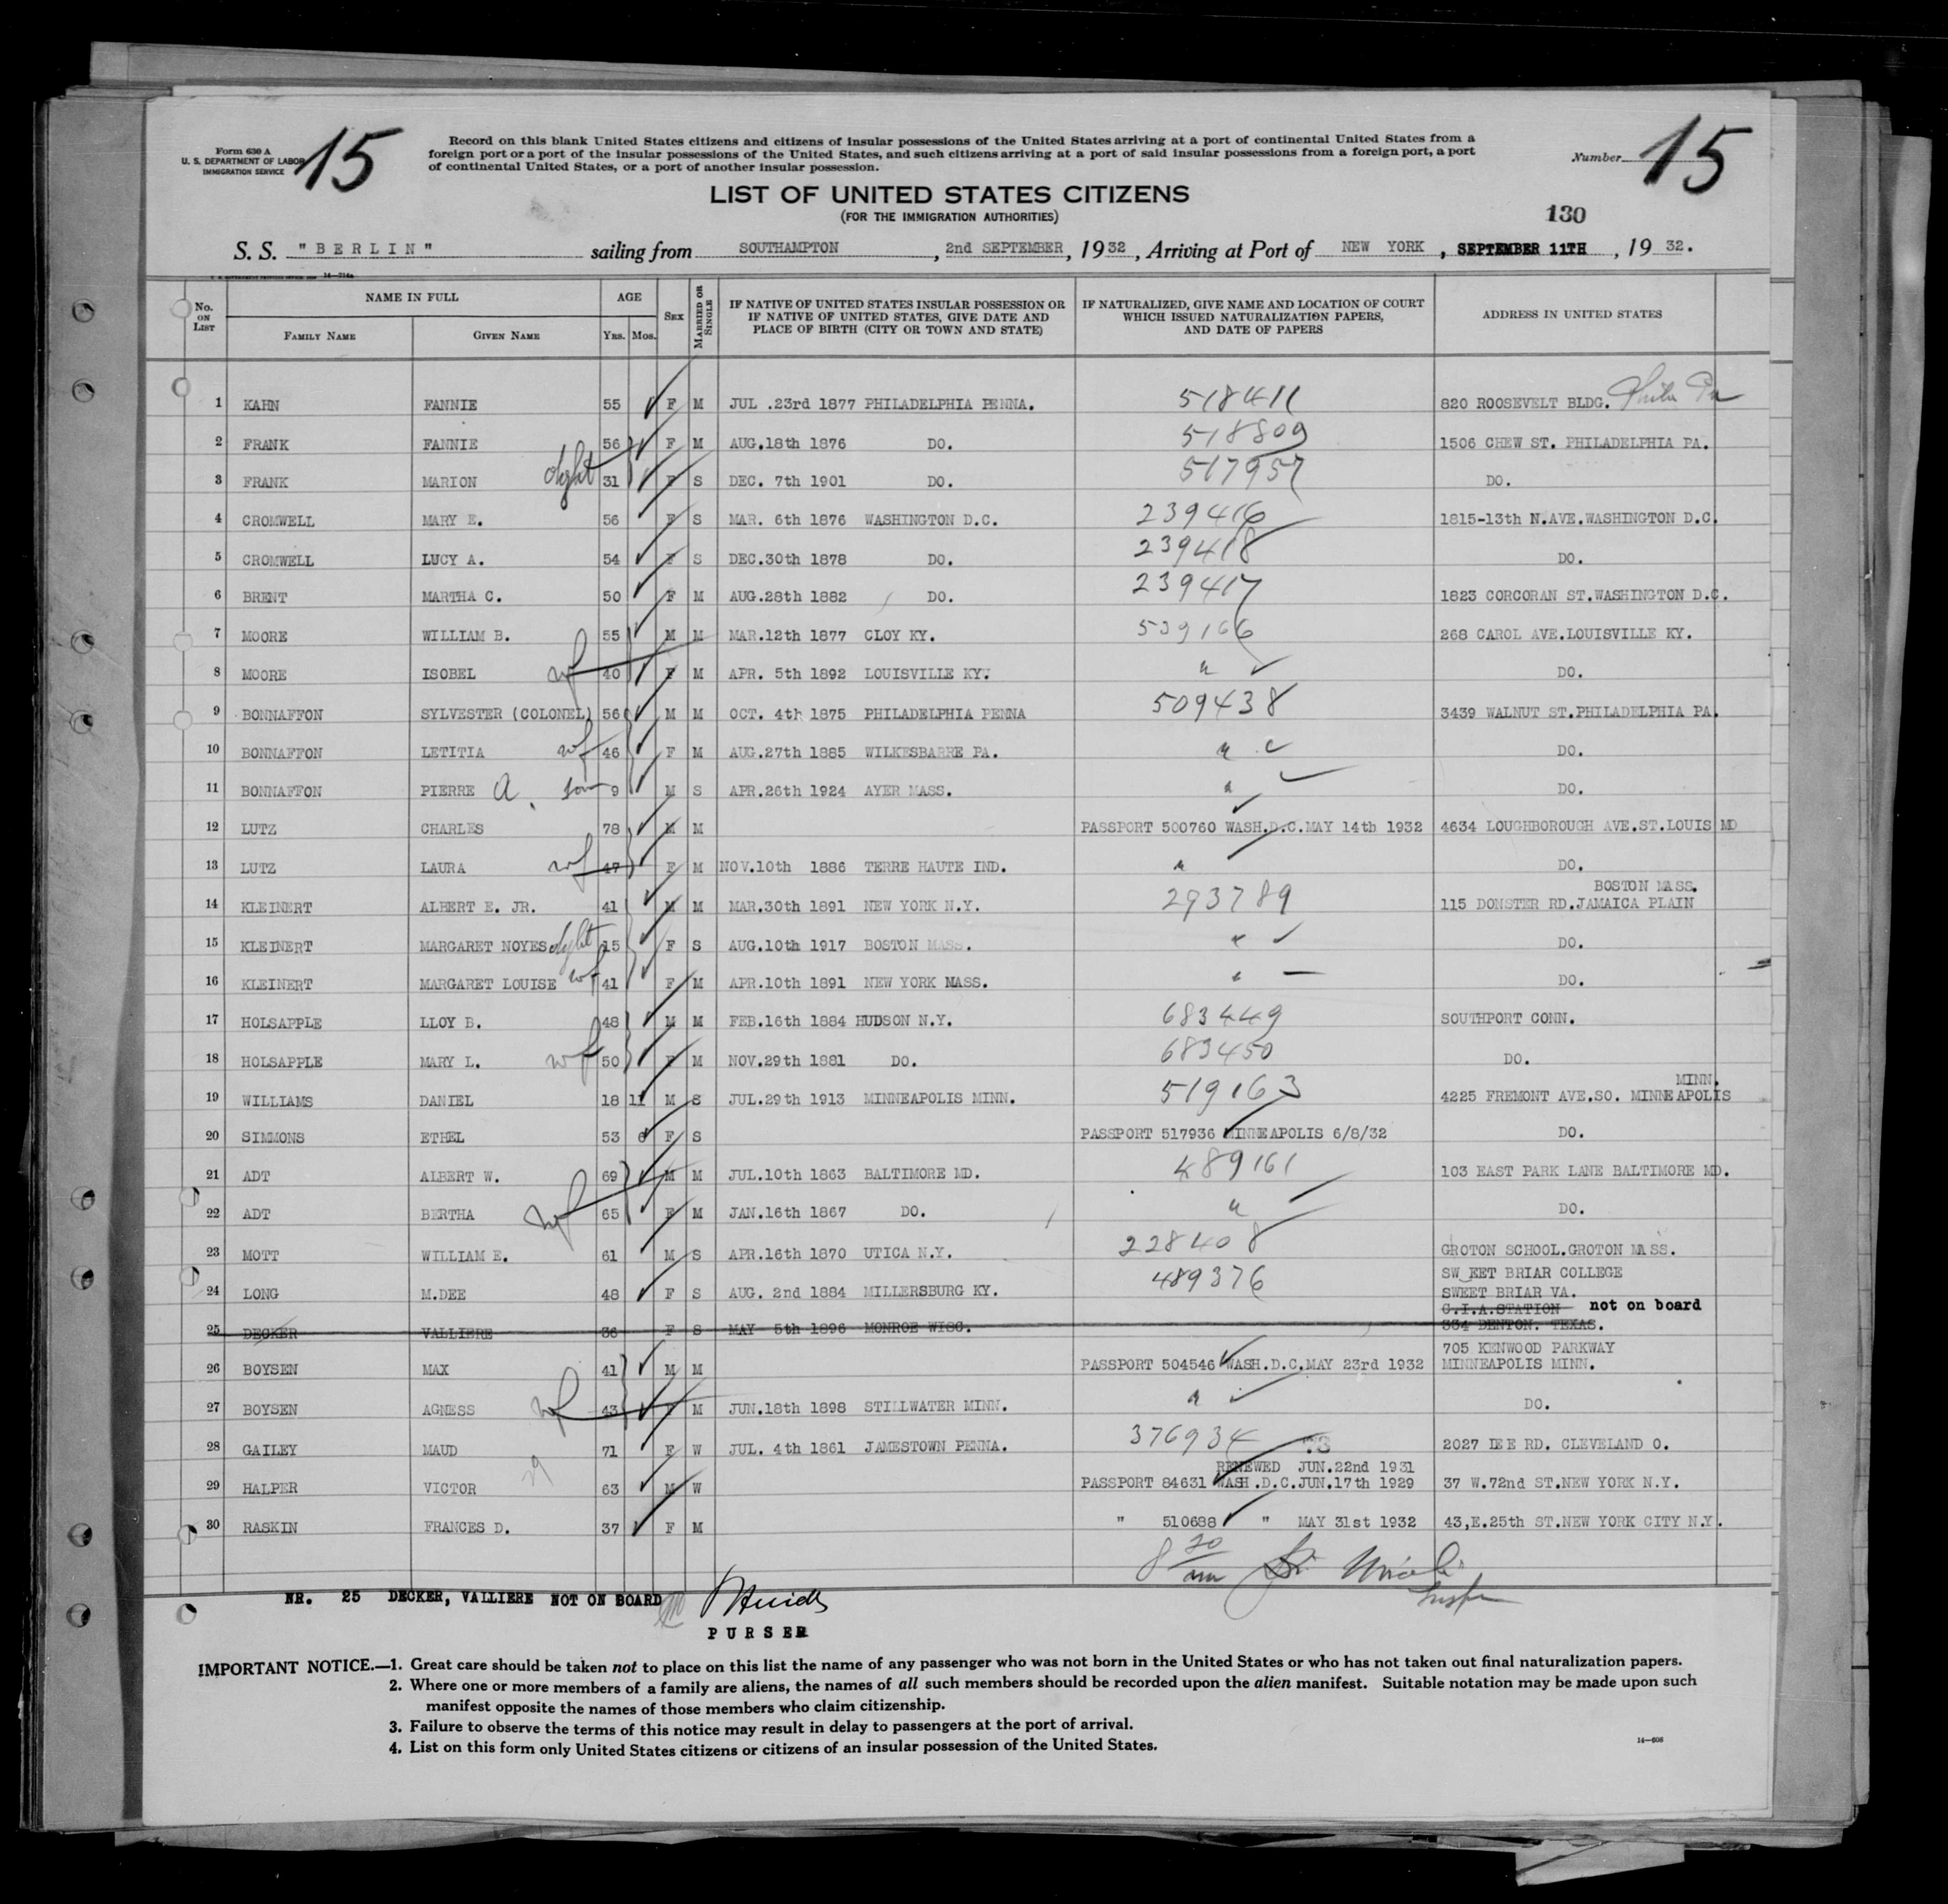 Form 630 A
U. S. DEPARTMENT OF LABOR
IMMIGRATION SERVICE
15
Record on this blank United States citizens and citizens of insular possessions of the United States arriving at a port of continental United States from a
foreign port or a port of the insular possessions of the United States, and such citizens arriving at a port of said insular possessions from a foreign port, a port
of continental United States, or a port of another insular possession.
Number 15
LIST OF UNITED STATES CITIZENS
(FOR THE IMMIGRATION AUTHORITIES)
130
S. S. "BERLIN" sailing from SOUTHAMPTON, 2nd SEPTEMBER, 1932, Arriving at Port of NEW YORK, SEPTEMBER 11TH, 1932.
No. ON LIST NAME IN FULL FAMILY NAME GIVEN NAME AGE YRS. MOS. SEX MARRIED OR SINGLE IF NATIVE OF UNITED STATES INSULAR POSSESSION OR IF NATIVE OF UNITED STATES, GIVE DATE AND PLACE OF BIRTH (CITY OR TOWN AND STATE) IF NATURALIZED, GIVE NAME AND LOCATION OF COURT WHICH ISSUED NATURALIZATION PAPERS, AND DATE OF PAPERS ADDRESS IN UNITED STATES
1 KAHN FANNIE 55 F M JUL .23rd 1877 PHILADELPHIA PENNA. 518411 820 ROOSEVELT BLDG. Phila Pa
2 FRANK FANNIE 56 F M AUG.18th 1876 DO. 518809 1506 CHEW ST. PHILADELPHIA PA.
3 FRANK MARION dght 31 F S DEC. 7th 1901 DO. 517957 DO.
4 CROMWELL MARY E. 56 F S MAR. 6th 1876 WASHINGTON D.C. 239416 1815-13th N.AVE.WASHINGTON D.C.
5 CROMWELL LUCY A. 54 F S DEC.30th 1878 DO. 239418 DO.
6 BRENT MARTHA C. 50 F M AUG.28th 1882 DO. 239417 1823 CORCORAN ST.WASHINGTON D.C.
7 MOORE WILLIAM B. 55 M M MAR.12th 1877 CLOY KY. 539166 268 CAROL AVE.LOUISVILLE KY.
8 MOORE ISOBEL wf 40 F M APR. 5th 1892 LOUISVILLE KY. " DO.
9 BONNAFFON SYLVESTER (COLONEL) 56 M M OCT. 4th 1875 PHILADELPHIA PENNA 509438 3439 WALNUT ST.PHILADELPHIA PA.
10 BONNAFFON LETITIA wf 46 F M AUG.27th 1885 WILKESBARRE PA. " DO.
11 BONNAFFON PIERRE A. son 9 M S APR.26th 1924 AYER MASS. " DO.
12 LUTZ CHARLES 78 M M PASSPORT 500760 WASH.D.C.MAY 14th 1932 4634 LOUGHBOROUGH AVE.ST.LOUIS MD
13 LUTZ LAURA wf 47 F M NOV.10th 1886 TERRE HAUTE IND. " DO.
BOSTON MASS.
14 KLEINERT ALBERT E. JR. 41 M M MAR.30th 1891 NEW YORK N.Y. 293789 115 DONSTER RD.JAMAICA PLAIN
15 KLEINERT MARGARET NOYES dght 15 F S AUG.10th 1917 BOSTON MASS. " DO.
16 KLEINERT MARGARET LOUISE wf 41 F M APR.10th 1891 NEW YORK MASS. " DO.
17 HOLSAPPLE LLOY B. 48 M M FEB.16th 1884 HUDSON N.Y. 683449 SOUTHPORT CONN.
18 HOLSAPPLE MARY L. wf 50 F M NOV.29th 1881 DO. 683450 DO.
MINN.
19 WILLIAMS DANIEL 18 11 M S JUL.29th 1913 MINNEAPOLIS MINN. 519163 4225 FREMONT AVE.SO. MINNEAPOLIS
20 SIMMONS ETHEL 53 6 F S PASSPORT 517936 MINNEAPOLIS 6/8/32 DO.
21 ADT ALBERT W. 69 M M JUL.10th 1863 BALTIMORE MD. 489161 103 EAST PARK LANE BALTIMORE MD.
22 ADT BERTHA wf 65 F M JAN.16th 1867 DO. " DO.
23 MOTT WILLIAM E. 61 M S APR.16th 1870 UTICA N.Y. 228408 GROTON SCHOOL.GROTON MASS.
SW EET BRIAR COLLEGE
24 LONG M.DEE 48 F S AUG. 2nd 1884 MILLERSBURG KY. 489376 SWEET BRIAR VA.
C.I.A.STATION not on board
25 DECKER VALLIERE 36 F S MAY 5th 1896 MONROE WISC. 334 DENTON. TEXAS.
705 KENWOOD PARKWAY
26 BOYSEN MAX 41 M M PASSPORT 504546 WASH.D.C.MAY 23rd 1932 MINNEAPOLIS MINN.
27 BOYSEN AGNESS wf 43 F M JUN.18th 1898 STILLWATER MINN. " DO.
28 GAILEY MAUD 71 F W JUL. 4th 1861 JAMESTOWN PENNA. 376934 2027 LEE RD. CLEVELAND O.
RENEWED JUN.22nd 1931
29 HALPER VICTOR 63 M W PASSPORT 84631 WASH.D.C.JUN.17th 1929 37 W.72nd ST.NEW YORK N.Y.
30 RASKIN FRANCES D. 37 F M " 510688 " MAY 31st 1932 43,E.25th ST.NEW YORK CITY N.Y.
8 30 am
NR. 25 DECKER, VALLIERE NOT ON BOARD
PURSER
IMPORTANT NOTICE.—1. Great care should be taken not to place on this list the name of any passenger who was not born in the United States or who has not taken out final naturalization papers.
2. Where one or more members of a family are aliens, the names of all such members should be recorded upon the alien manifest. Suitable notation may be made upon such
manifest opposite the names of those members who claim citizenship.
3. Failure to observe the terms of this notice may result in delay to passengers at the port of arrival.
4. List on this form only United States citizens or citizens of an insular possession of the United States.